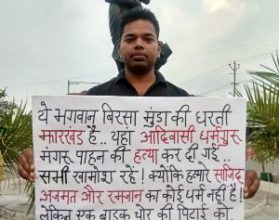 ये भगवान बिरसा मुंडा की धरती
झारखंड है.. यहां आदिवासी धर्मगुरू
मंगरू पाहन की हत्या कर दी गई
सभी खामोश रहे! क्योंकि हत्यारे साजिद
अजमत और रमजान का कोई धर्म नहीं है!
लेकिन एक बाइक चोर की पिटाई को